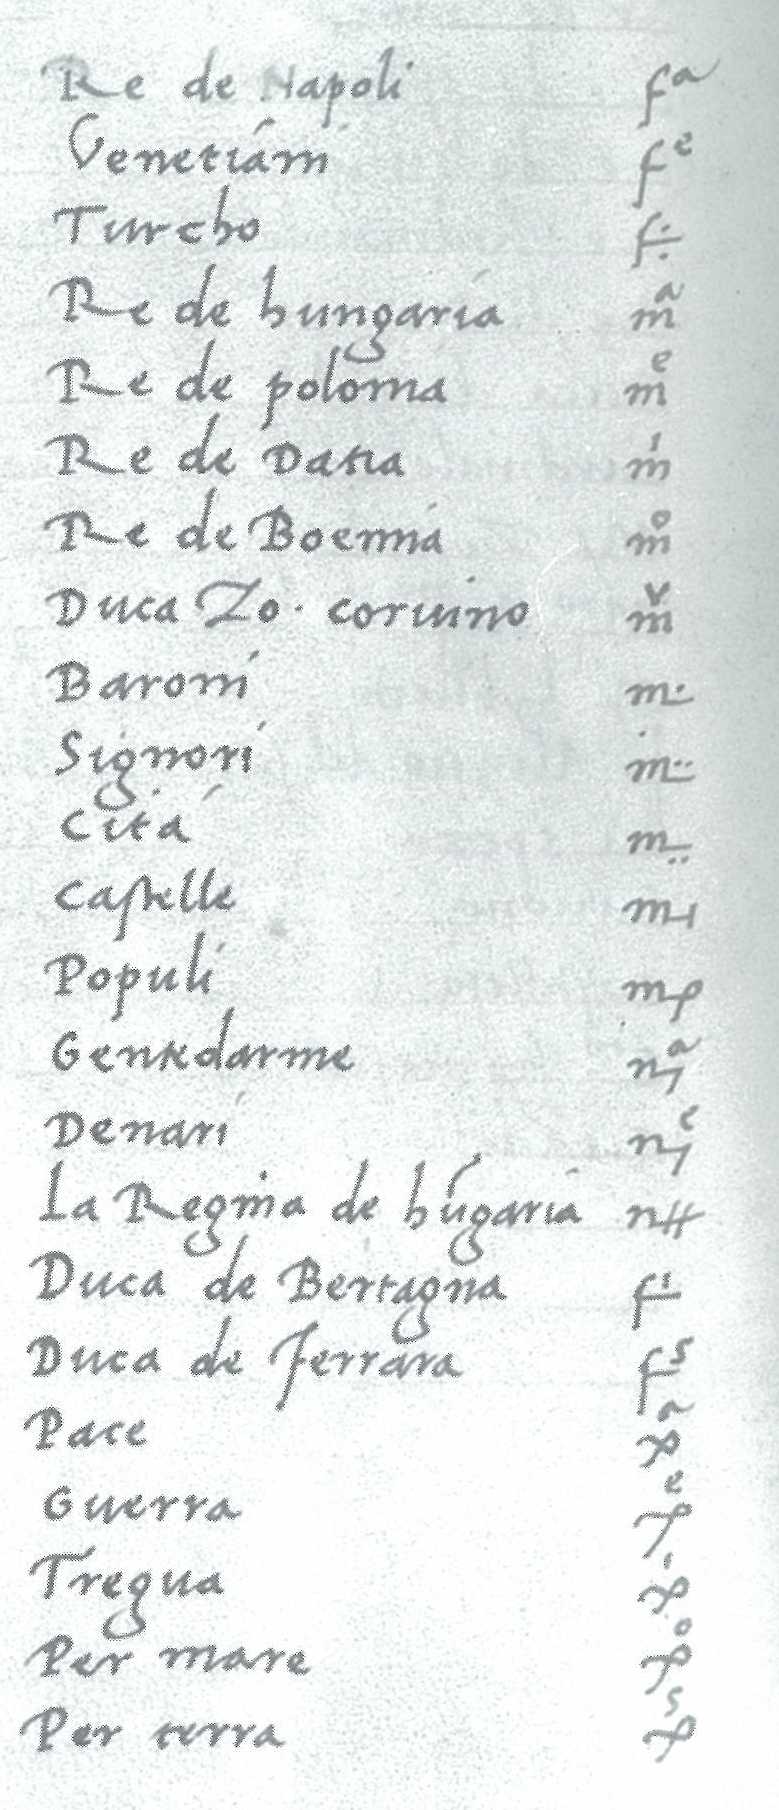 Re de Napoli fᵃ
Venetiani fᵉ
Turcho f÷
Re de hungaria mᵃ
Re de polonia mᵉ
Re de Datia mⁱ
Re de Boemia mᵒ
Duca Zo. coruino mᵛ
Baroni m
Signori m
Cità m
Castelle m
Populi mp
Gentedarme nᵃ
Denari nᵉ
La Regina de hūgaria n
Duca de Bertagna fⁱ
Duca de Ferrara fˢ
Pace pᵃ
Guerra pᵉ
Tregua pⁱ
Per mare pᵒ
Per terra pˢ